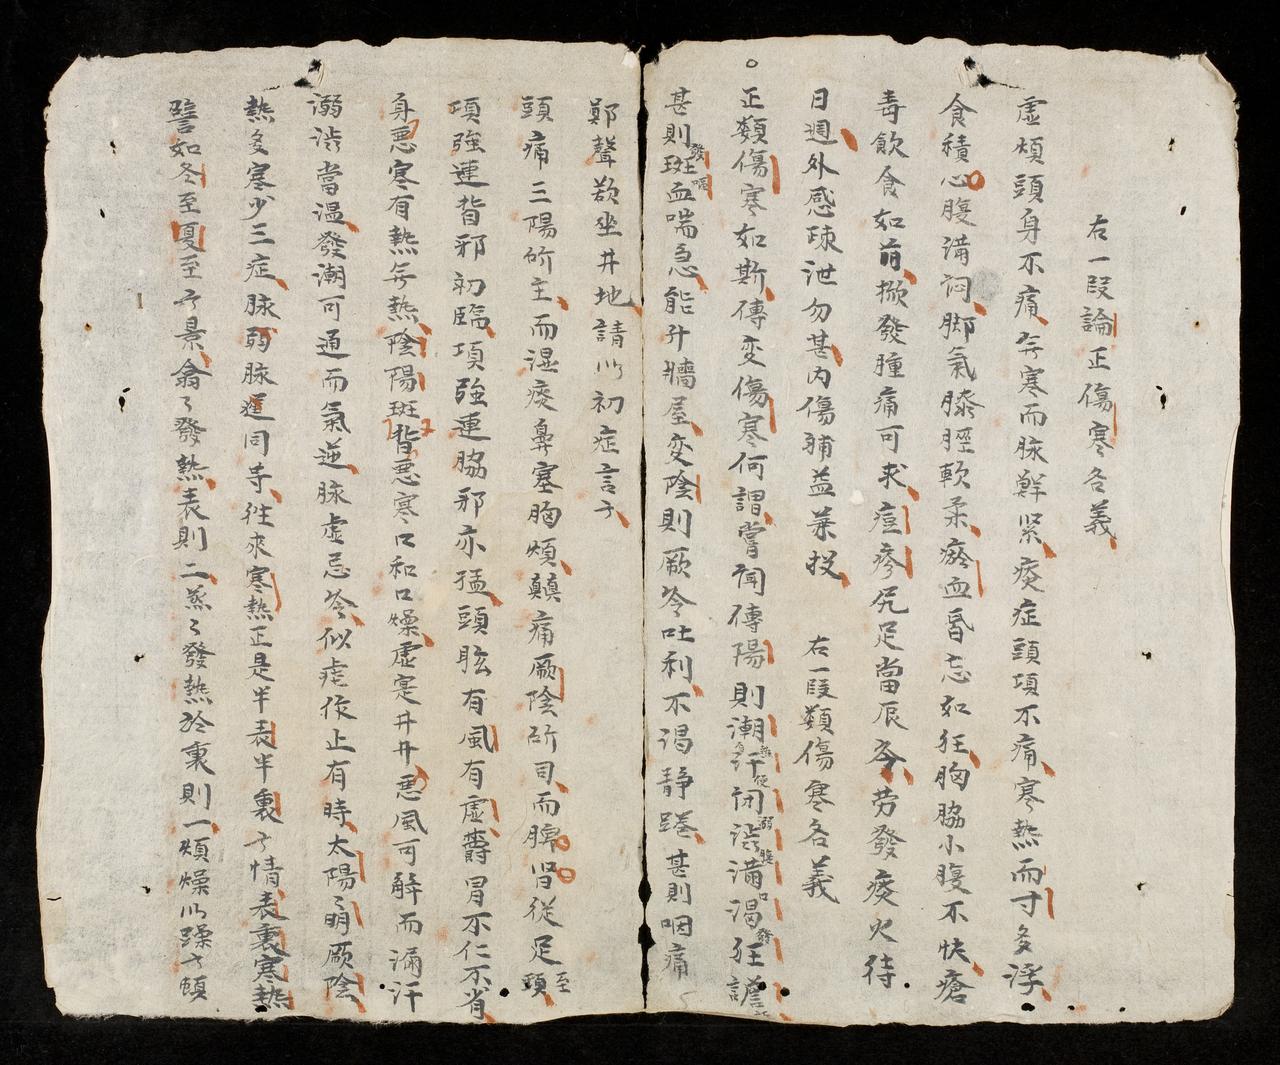 右一段論正傷寒各義
虛煩頭身不痛無寒而脉鮮紧痰症頭項不痛寒熱而寸多浮
食積心腹满闷脚氣膝脛軟柔瘀血昏忘如狂胸脇小腹不快瘡
毒飲食如前掀發腫痛可求痘疹尻足當辰各劳發痰火待
日週外感疎泄勿甚内傷補益兼投
右一段類傷寒各義
正類傷寒如斯傳变傷寒何謂嘗闻傳陽則潮汗闭澁满渴狂譫
甚則斑血喘急能升墙屋变陰則厥冷吐利不渴静踡甚則咽痛
鄭聲欲坐井地請以初症言之
頭痛三陽所主而湿痰鼻塞胸煩顛痛厥陰所司而脾肾從足至頭
項強連背邪初臨項強連脇邪亦猛頭眩有風有虛欝冒不仁不省
身悪寒有熱無熱陰陽斑背悪寒口和口燥虛寔井井悪風可解而漏汗
溺澁當温發潮可通而氣逆脉虛忌冷似瘧作止有時太陽明厥陰
熱多寒少三症脉弱脉遲同等往來寒熱正是半表半裏之情表裏寒熱
譬如冬至夏至之景翕〻發熱表則二蒸〻發熱於裏則一煩燥以躁之頓